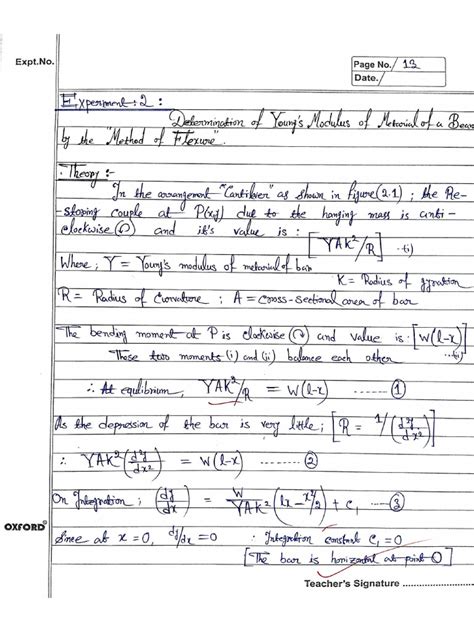 Expt.No.
Page No. 13
Date.
Experiment: 2 :
Determination of Young's Modulus of Metarial of a Beam
by the "Method of Flexure".
Theory :-
In the arrangement "Cantiliver" as shown in figure (2.1) ; the Re-
-storing couple at P(x,y) due to the hanging mass is anti-
-clockwise (↺) and it's value is : [YAK²/R] -(i)
Where ; Y = Young's modulus of metarial of bar
K = Radius of gyration
R = Radius of Curvature ; A = cross-sectional area of bar
The bending moment at P is clockwise (↻) and value is : [W(l-x)] -(ii)
These two moments (i) and (ii) balance each other
∴ At equlibrium, YAK²/R = W(l-x) ------- ①
As the depression of the bar is very little; [R = 1/(d²y/dx²)]
∴ YAK² (d²y/dx²) = W(l-x) ------- ②
On Integration ; (dy/dx) = W/YAK² (lx - x²/2) + C₁ ---- ③
Since at x = 0, dy/dx = 0 ∴ Integration constant C₁ = 0
[The bar is horizontal at point O]
OXFORD®
Teacher's Signature ................